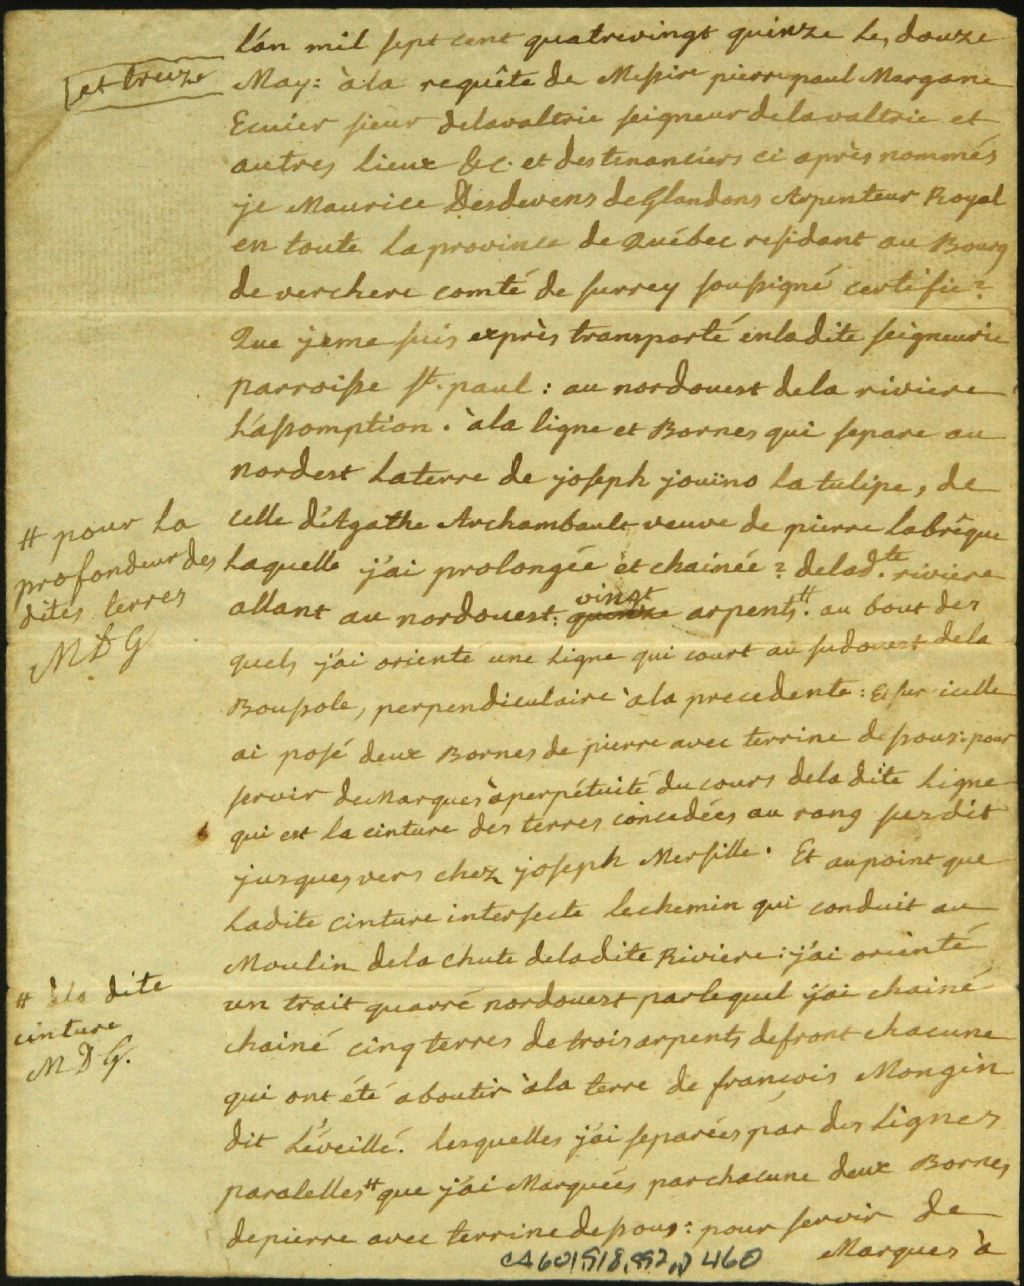 L'an mil sept cent quatrevingt quinze le, douze
et treize
May: à la requête de Messire pierre paul Margane
Ecuier sieur delavaltrie seigneur delavaltrie et
autres lieux &c. et des tenanciers ci après nommés
je Maurice Desdevens de Glandons Arpenteur Royal
en toute la province de Québec residant au Bourg
de verchere comté de surrey soussigné certifie:
Que jeme suis exprès transporté enladite seigneurie
parroisse St. paul: au nordouest dela riviere
L'assomption. à la ligne et Bornes qui separe au
nordest laterre de joseph jouïno la tulipe, de
celle d'Agathe Archambault veuve de pierre labrêque
# pour la
profondeur des
dites terres
M D G
Laquelle j'ai prolongée et chainée: delad.te riviere
allant au nordouest: quinze vingt arpents #. au bout des
quels j'ai orienté une ligne qui court au sudouest dela
Boussole, perpendiculaire à la precedente: Et sur icelle
ai posé deux Bornes de pierre avec terrine dessous: pour
servir de Marques à perpétuité du cours dela dite Ligne
qui est la cinture des terres concedées au rang susdit
jusques vers chez joseph Mersille. Et au point que
Ladite cinture intersecte lechemin qui conduit au
Moulin dela chute deladite Riviere: j'ai orienté
# à la dite
cinture
M D G.
un trait quarré nordouest parlequel j'ai chainé
chainé cinq terres de trois arpents defront chacune
qui ont été aboutir à la terre de françois Mongin
dit L'éveillé. lesquelles j'ai separées par des Lignes
paralelles # que j'ai Marquées par chacune deux Bornes
depierre avec terrine dessous: pour servir de
Marques à
CA601,S18,SS2,D460